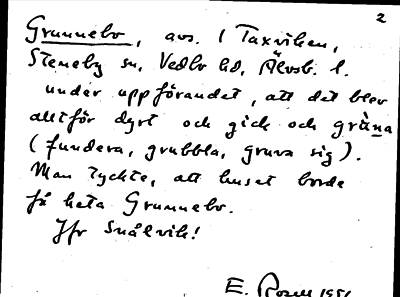 2
Grunnebo, avs. i Taxviken,
Steneby sn, Vedbo hd, Älvsb. l.
under uppförandet, att det blev
alltför dyrt och gick och gruna
(fundera, grubbla, gruva sig).
Man tyckte, att huset borde
få heta Grunnebo.
Jfr Snålvik!
E. Rosell 1951